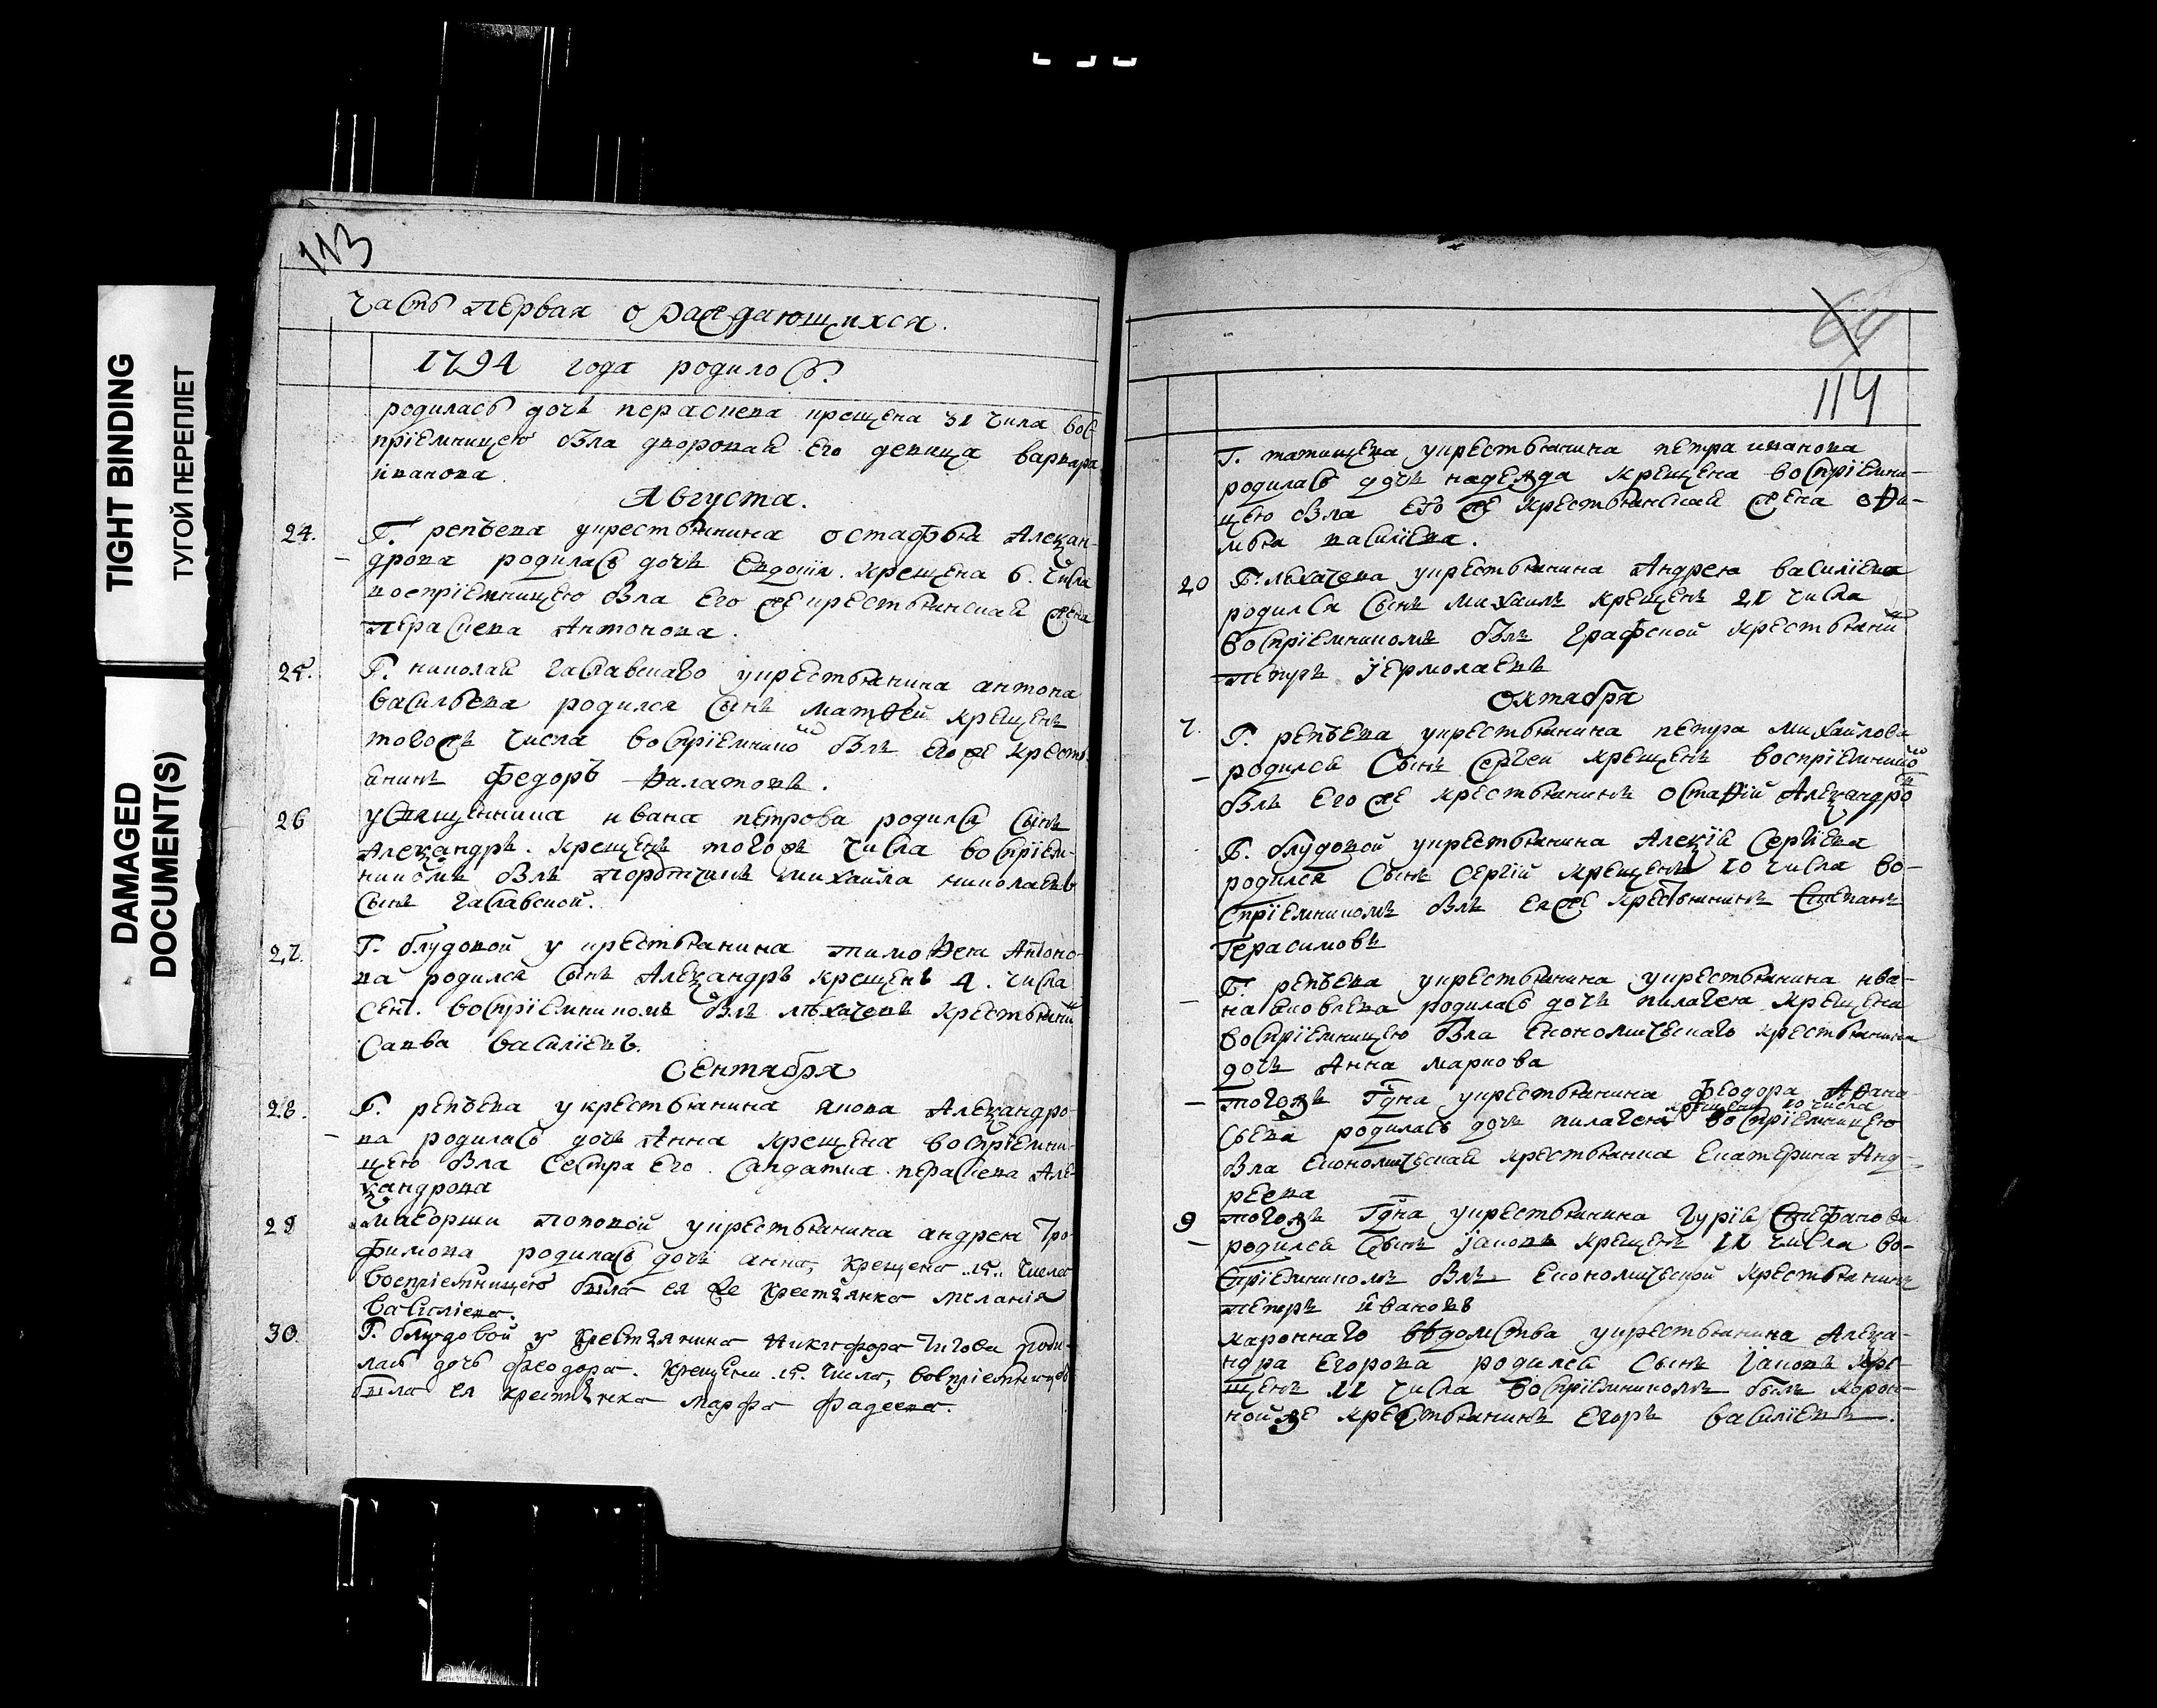 TIGHT BINDING
ТУГОЙ ПЕРЕПЛЕТ
DAMAGED
DOCUMENT(S)
113
Часть первая о раждающихся.
1794 года родилось.
родилась дочь параскева крещена 31 числа вос-
пріемницею бла дворовая его девица варвара
иванова
Августа.
24. Г. репьева укрестьянина остафья Алеѯан-
дрова родилась дочь Евдокія. крещена 6. числа
воспріемницею бла его же крестьянская жена
параскева Антонова.
25. Г. николая Гаславскаго укрестьянина антона
васильева родился сынъ матѳей крещенъ
тогожъ числа воспріемнико бы его же крестья-
анинъ федоръ Филатовъ.
26 усвященника ивана петрова родился сынъ
Алеѯандръ. крещенъ тогожъ числа воспріем-
никомъ блъ михайла николаевъ
сынъ Гаславской.
27. Г. блудовой у крестьянина тимоѳея Антоно-
ва родился сынъ Алеѯандръ крещенъ 4. числа
сент. воспріемникомъ блъ лѣхачева крестьянинъ
савва василіевъ.
Сентября
28. Г. репьева укрестьянина якова Алеѯандро-
ва родилась дочь Анна крещена воспріемни-
цею бла сестра его салдатка параскева Але-
ѯандрова
29 маеорши поповой укрестьянина андрея Тро-
фимова родилась дочь анна, крещена .15. числа
воспріемницею была ея же крестьянка меланія
василіева.
30. Г. блудовой у крестьянина Никифора Титова роди-
лась дочь феодора. крещена .15. числа, воспріемницею
была ея крестьянка марфа фадеева.
64
114
Г. татищева укрестьянина петра иванова
родилась дочь надежда крещена воспріемни-
цею бла его же крестьянская жена
василіева.
20 Г. лѣхачева укрестьянина Андрея василіева
родился сынъ михаилъ крещенъ 21 числа
воспріемникомъ блъ Графской крестьянинъ
петръ Іермолаевъ
Октября
7. Г. репьева укрестьянина петра михайлова
родился сынъ сергеи крещенъ воспріемнико
блъ его же крестьянинъ остаѳій Алеѯандро
Г. блудовой укрестьянина Алеѯія сергіева
родился сынъ сергій крещенъ 10 числа во-
спріемникомъ блъ ея же крестьянинъ степанъ
Герасимовъ
Г. репьева укрестьянина укрестьянина ива-
на родилась дочь пилагея крещена
воспріемницею бла економическаго крестьянина
дочь Анна маркова
тогожъ Гдна укрестьянина феодора Аѳана-
крещена 10 числа
сьева родилась дочь пилагея воспріемницею
бла економическая крестьянка Екатерина Анд-
реева
9 тогожъ Гдна укрестьянина Гурія Стефанова
родился сынъ Іаковъ крещенъ 11 числа во-
спріемникомъ блъ економической крестьянинъ
петръ ивановъ
кароннаго вѣдомства укрестьянина Алеѯа-
ндра Егорова родился сынъ Іаковъ кре-
щенъ 11 числа воспріемникомъ былъ корон-
ной же крестьянинъ Егоръ василіевъ.